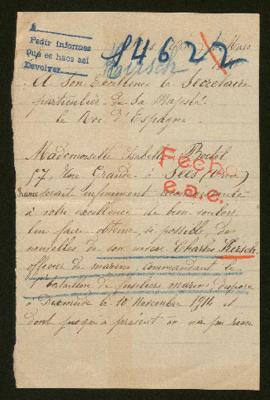 A
Pedir informes
Que es haos asi
Devolver
84622
Hirsch
A Son Excellence le Secrétaire
particulier de Sa Majesté
le Roi d'Espagne
Mademoiselle
Fech
57 Rue Grande à
France serait infiniment
e.a.e.
à votre excellence de bien vouloir
lui faire obtenir si possible des
nouvelles de son neveu Charles Hirsch
officier de marine, commandant le
bataillon de fusiliers marins disparu
à Dixmude le 10 Novembre 1914 et
dont jusqu'à présent on n'a pu